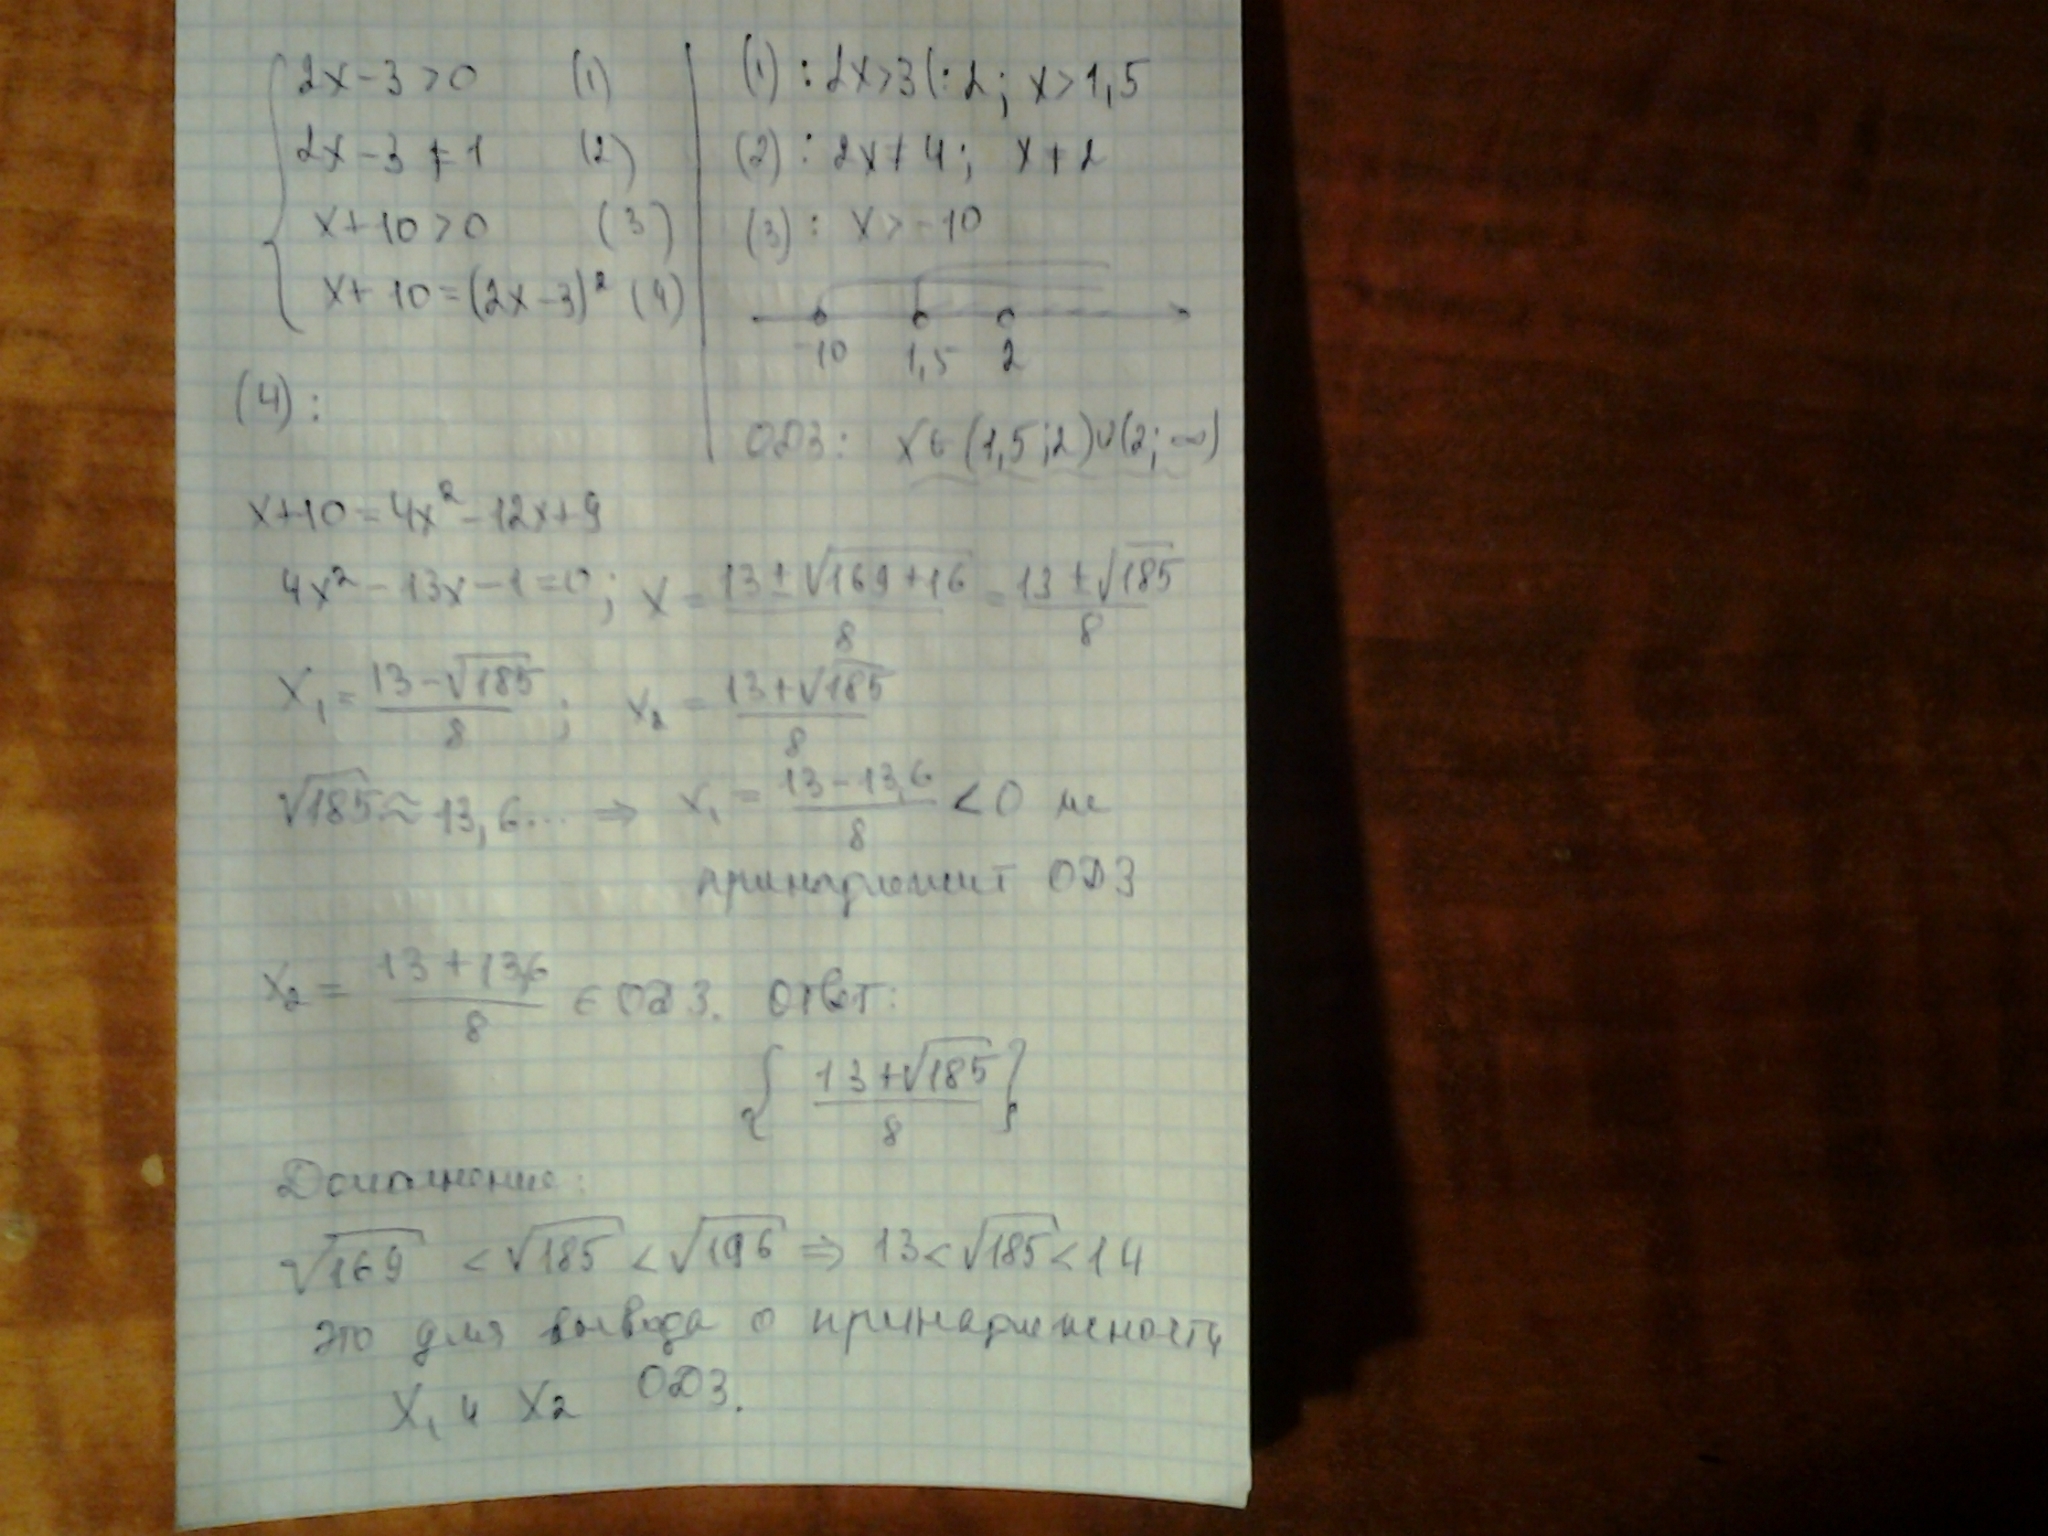 2x-3>0 (1)
2x-3≠1 (2)
x+10>0 (3)
x+10=(2x-3)² (4)
(1): 2x>3 |:2; x>1,5
(2): 2x≠4; x≠2
(3): x>-10
-10 1,5 2
ОДЗ: x∈(1,5;2)∪(2;∞)
(4):
x+10=4x²-12x+9
4x²-13x-1=0; x=(13±√(169+16))/8=(13±√185)/8
x₁=(13-√185)/8; x₂=(13+√185)/8
√185≈13,6... ⇒ x₁=(13-13,6)/8<0 не
принадлежит ОДЗ
x₂=(13+13,6)/8 ∈ ОДЗ. Ответ:
{(13+√185)/8}
Дополнение:
√169<√185<√196 ⇒ 13<√185<14
это для вывода о принадлежности
x₁ и x₂ ОДЗ.